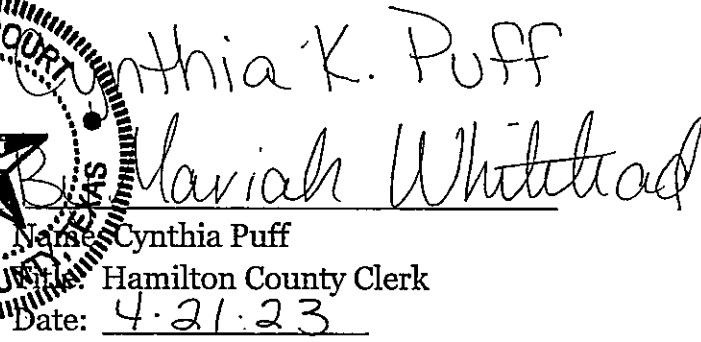 COURT
Cynthia K. Puff
By Mariah Whitehead
TEXAS
Name: Cynthia Puff
Title: Hamilton County Clerk
Date: 4.21.23